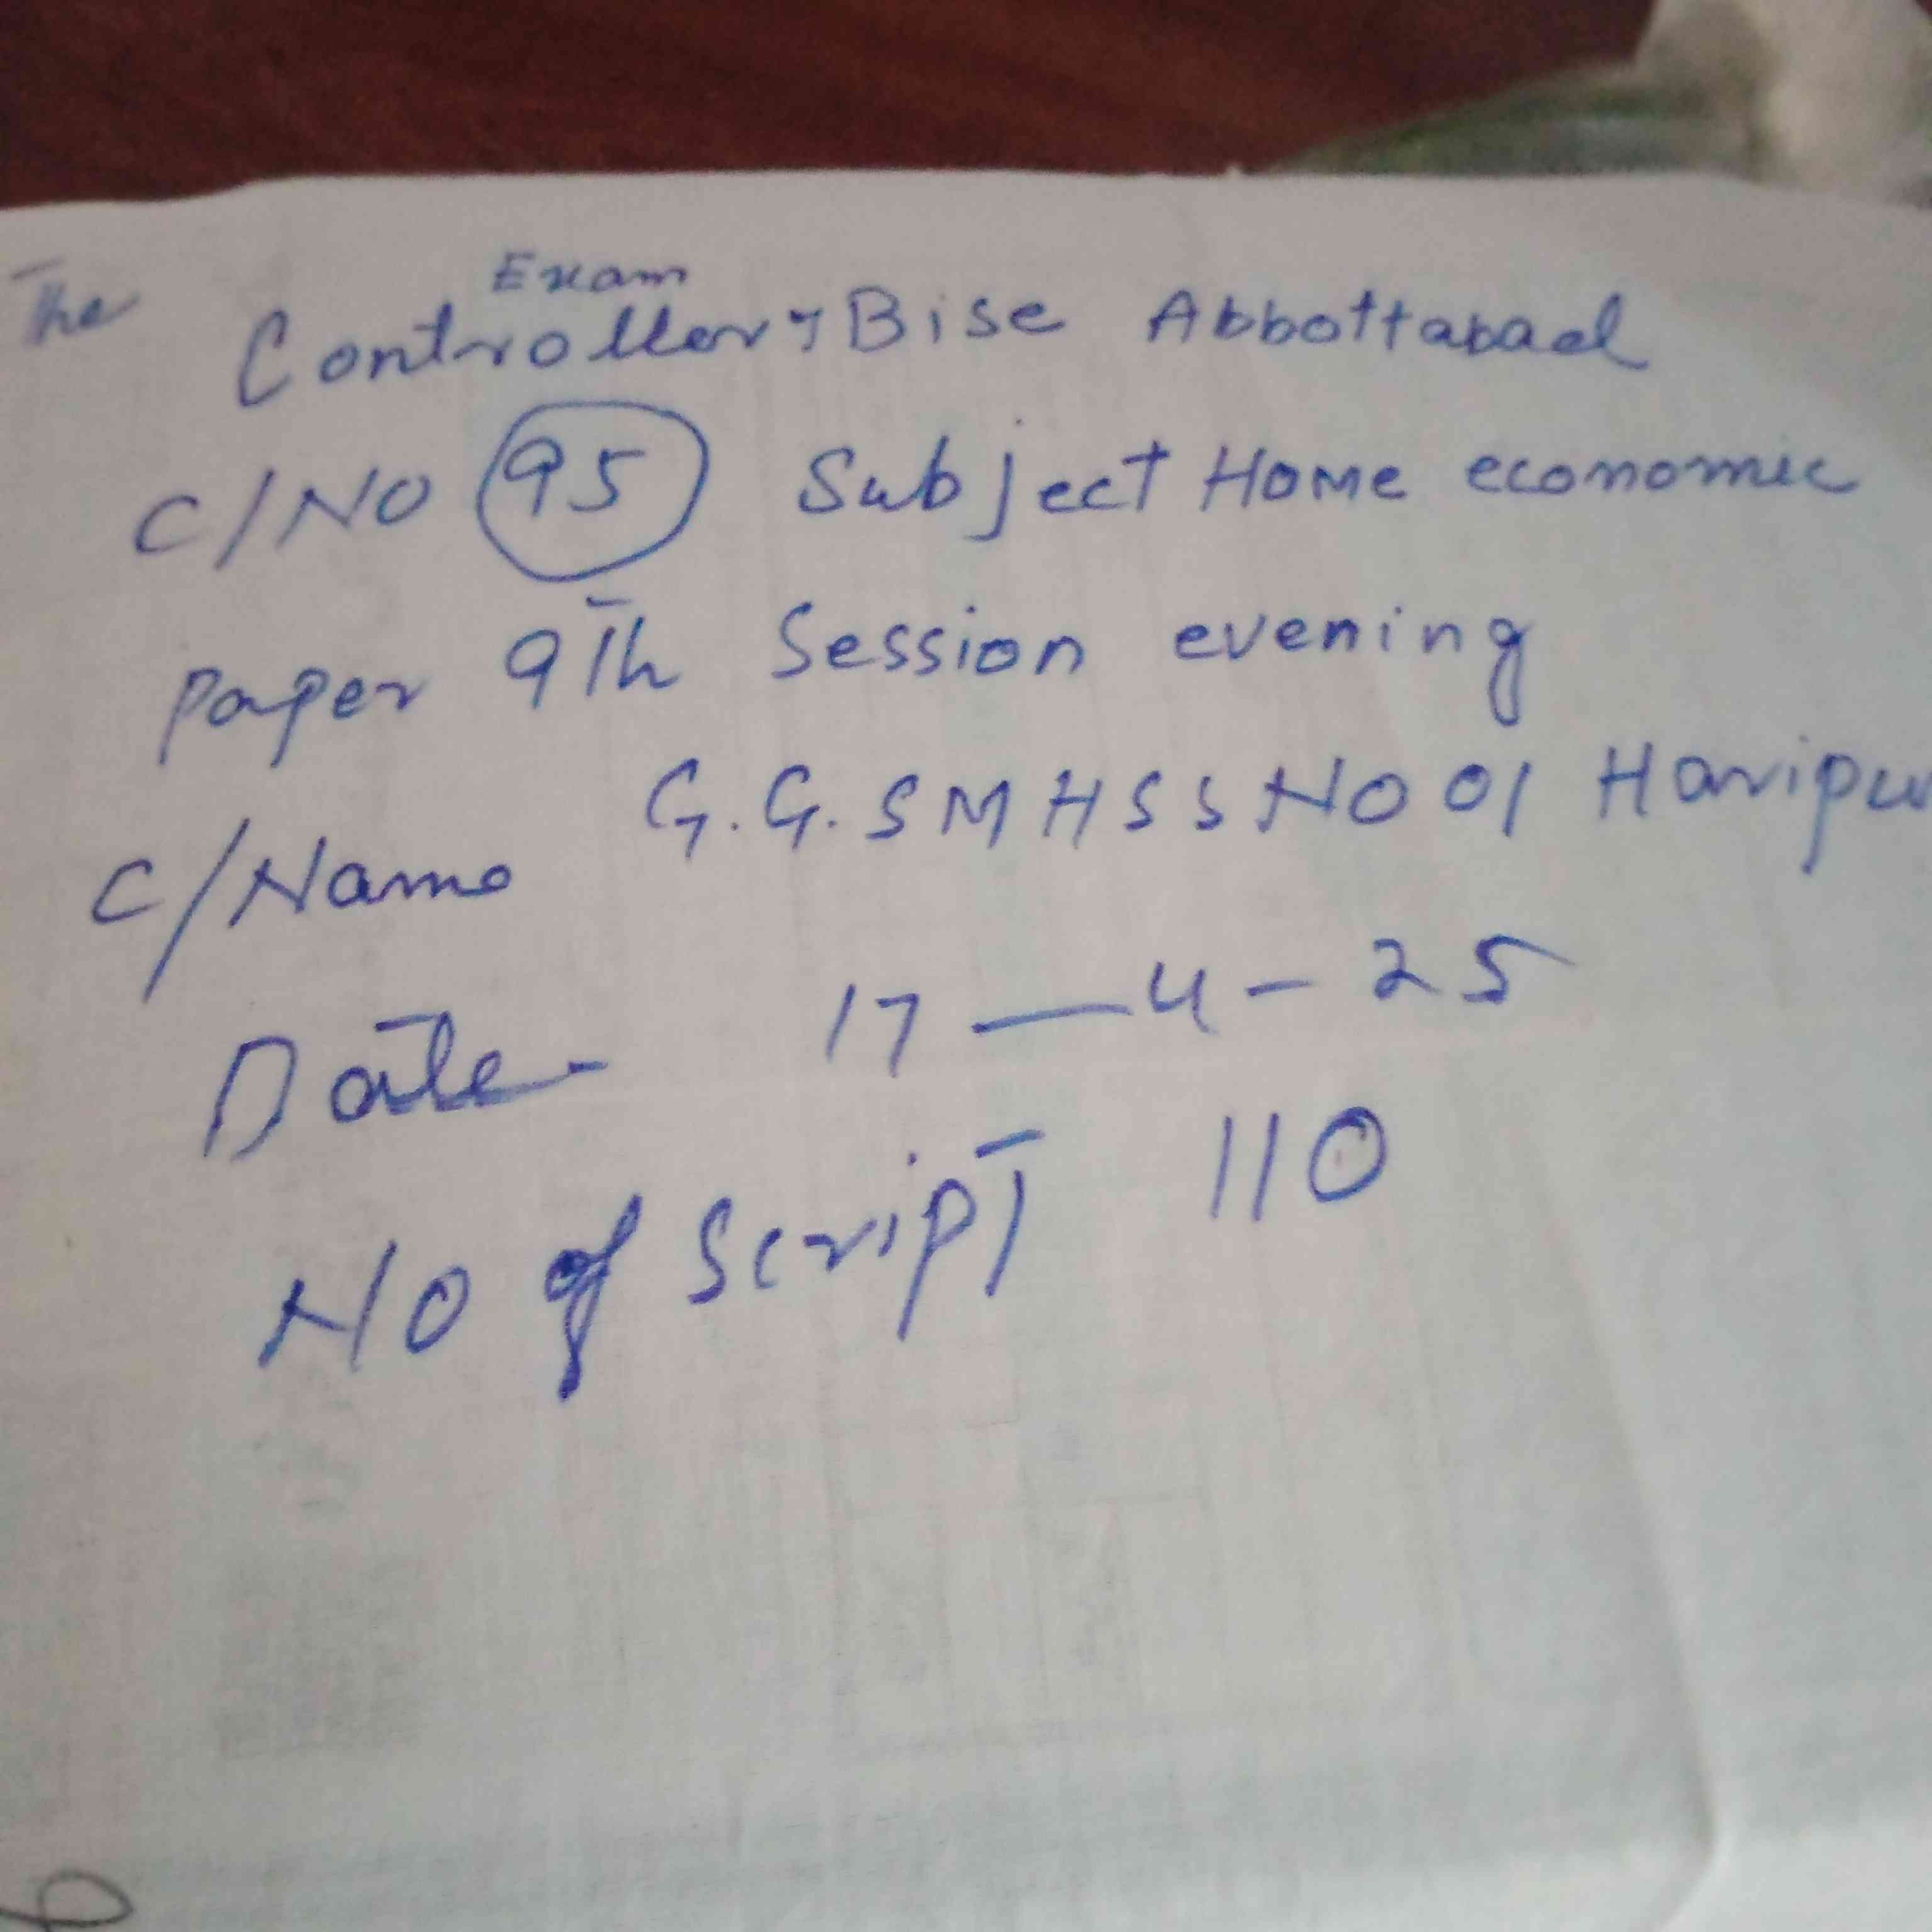 The Controller Exam, Bise Abbottabad
C/No 95 Subject Home economic
Paper 9Th Session evening
C/Name G.G.SMHSS No 01 Haripur
Date- 17-4-25
No of Script 110